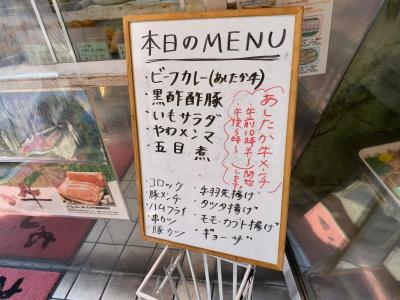 本日のMENU
・ビーフカレー(あしたか牛)
・黒酢酢豚
・いもサラダ
・やわメンマ
・五目煮
あしたか牛メンチ
午前10時半〜
午後3時〜
開始します
・コロッケ
・豚メンチ
・ハムフライ
・串カツ
・豚カツ
・手羽先揚げ
・タツタ揚げ
・モモ・カブト揚げ
・ギョーザ